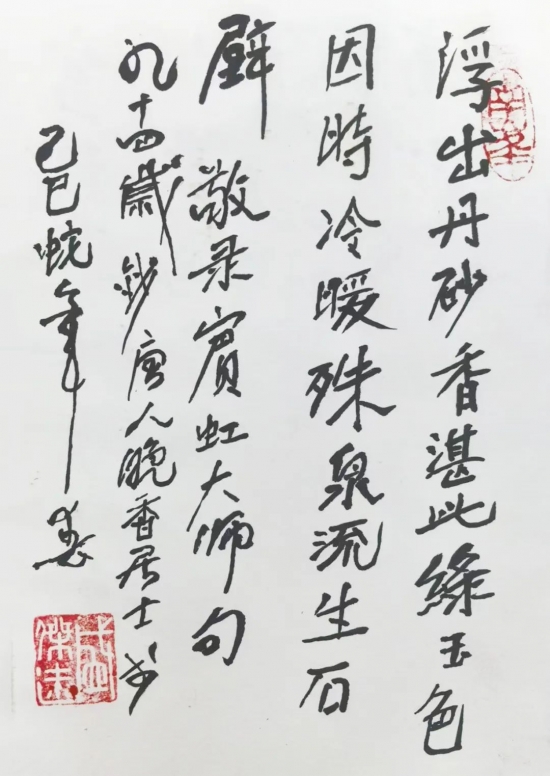 浮出丹砂香湛此綠玉色
因時冷暖殊泉流生石
壁 敬录賓虹大师句
九十四歲鈔唐人晚香居士书
己巳蛇年春